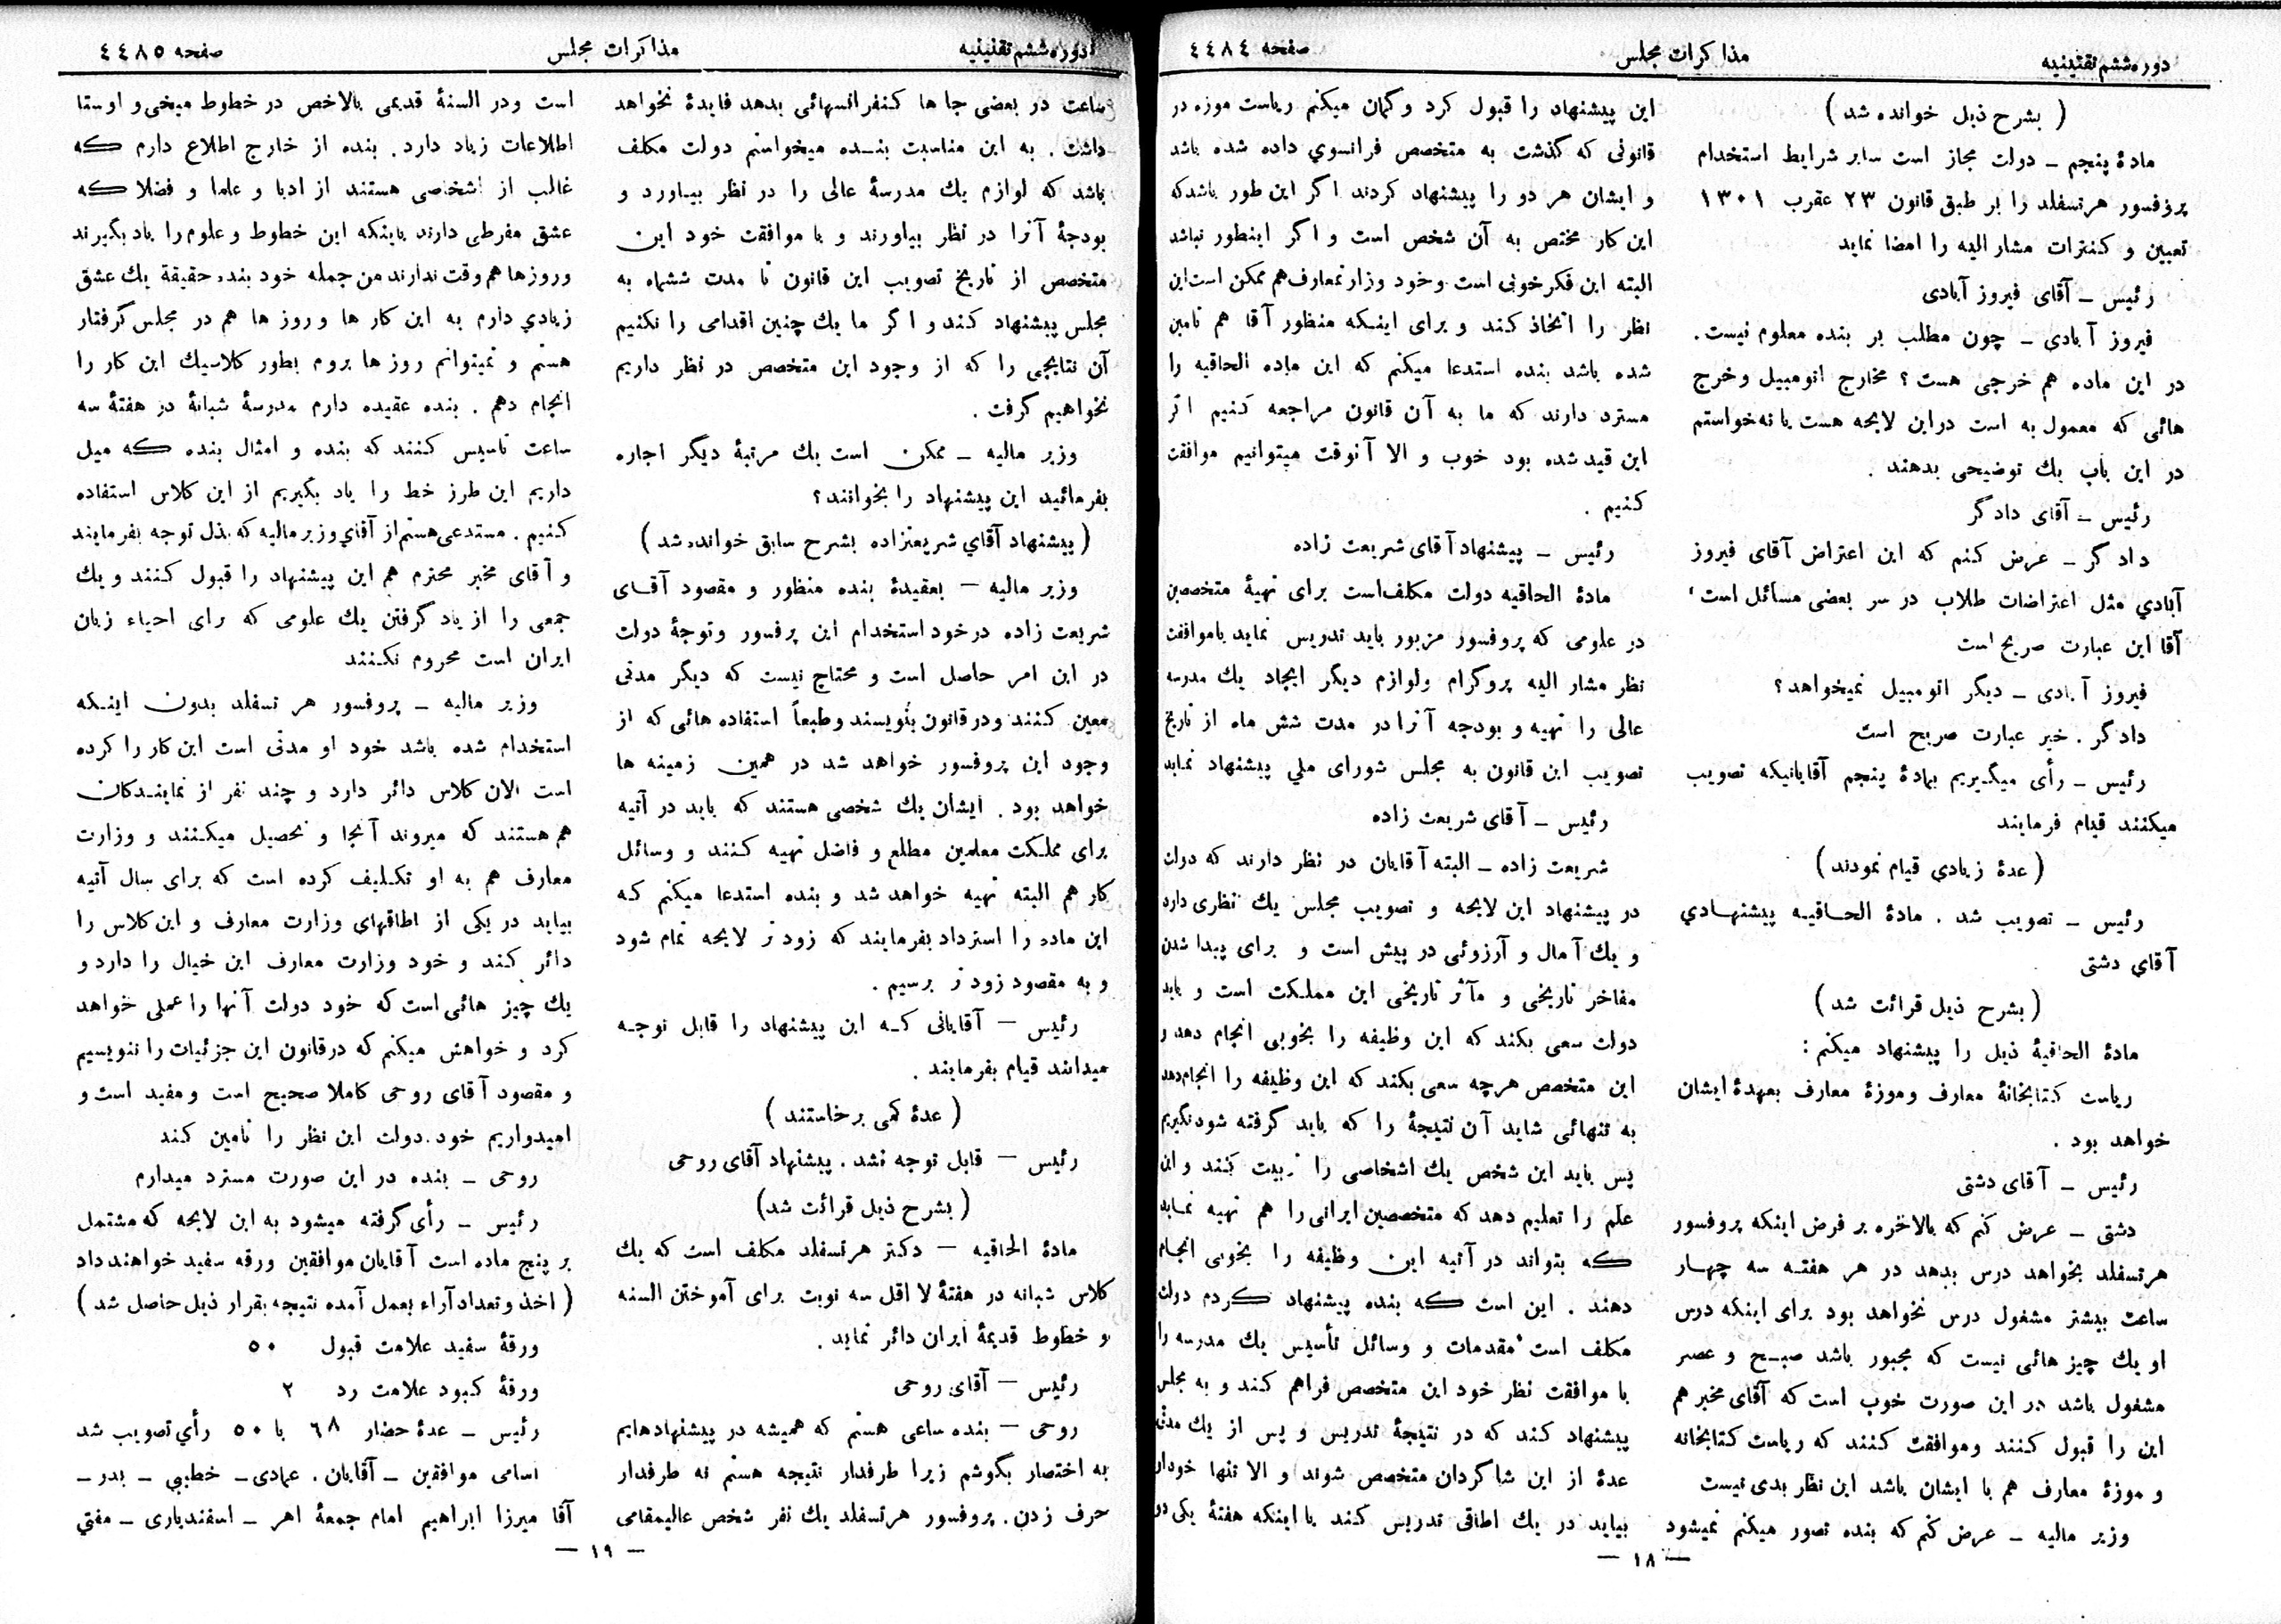 دوره ششم تقنینیه
مذاکرات مجلس
صفحه ٤٤٨٤
( بشرح ذیل خوانده شد )
مادهٔ پنجم ـ دولت مجاز است سایر شرایط استخدام
پرفسور هرتسفلد را بر طبق قانون ۲۳ عقرب ۱۳۰۱
تعیین و کنترات مشار الیه را امضا نماید
رئیس ـ آقای فیروز آبادی
فیروز آبادی ـ چون مطلب بر بنده معلوم نیست.
در این ماده هم خرجی هست ؟ مخارج اتومبیل وخرج
هائی که معمول به است دراین لایحه هست یا نه خواستم
در این باب یك توضیحی بدهند .
رئیس ـ آقای دادگر
دادگر ـ عرض کنم که این اعتراض آقای فیروز
آبادي مثل اعتراضات طلاب در سر بعضی مسائل است
آقا این عبارت صریح است
فیروز آبادی ـ دیگر اتومبیل نمیخواهد ؟
دادگر . خیر عبارت صریح است
رئیس ـ رأی میگیریم بمادهٔ پنجم آقایانیکه تصویب
میکنند قیام فرمایند
( عدهٔ زیادي قیام نمودند )
رئیس ـ تصویب شد . مادهٔ الحاقیه پیشنهادي
آقاي دشتی
( بشرح ذیل قرائت شد )
مادهٔ الحاقیهٔ ذیل را پیشنهاد میکنم :
ریاست کتابخانهٔ معارف وموزهٔ معارف بعهدهٔ ایشان
خواهد بود .
رئیس ـ آقای دشتی
دشتی ـ عرض کنم که بالاخره بر فرض اینکه پروفسور
هرتسفلد بخواهد درس بدهد در هر هفته سه چهار
ساعت بیشتر مشغول درس نخواهد بود برای اینکه درس
او یك چیز هائی نیست که مجبور باشد صبح و عصر
مشغول باشد در این صورت خوب است که آقای مخبر هم
این را قبول کنند وموافقت کنند که ریاست کتابخانه
و موزهٔ معارف هم با ایشان باشد این نظر بدی نیست
وزیر مالیه ـ عرض کنم که بنده تصور میکنم نمیشود
این پیشنهاد را قبول کرد و گمان میکنم ریاست موزه در
قانونی که گذشت به متخصص فرانسوي داده شده باشد
و ایشان هر دو را پیشنهاد کردند اگر این طور باشد که
این کار مختص به آن شخص است و اگر اینطور نباشد
البته این فکر خوبی است و خود وزارتمعارف هم ممکن است این
نظر را اتخاذ کند و برای اینکه منظور آقا هم تامین
شده باشد بنده استدعا میکنم که این ماده الحاقیه را
مسترد دارند که ما به آن قانون مراجعه کنیم اگر
این قید شده بود خوب و الا آنوقت میتوانیم موافقت
کنیم .
رئیس ـ پیشنهاد آقای شریعت زاده
مادهٔ الحاقیه دولت مکلف است برای تهیهٔ متخصصین
در علومی که پروفسور مزبور باید تدریس نماید باموافقت
نظر مشار الیه پروگرام ولوازم دیگر ایجاد یك مدرسه
عالی را تهیه و بودجه آنرا در مدت شش ماه از تاریخ
تصویب این قانون به مجلس شورای ملي پیشنهاد نماید
رئیس ـ آقای شریعت زاده
شریعت زاده ـ البته آقایان در نظر دارند که دولت
در پیشنهاد این لایحه و تصویب مجلس یك نظری دارد
و یك آمال و آرزوئی در پیش است و برای پیدا شدن
مفاخر تاریخی و مآثر تاریخی این مملکت است و باید
دولت سعی بکند که این وظیفه را بخوبی انجام دهد و
این متخصص هرچه سعی بکند که این وظیفه را انجام دهد
به تنهائی شاید آن نتیجهٔ را که باید گرفته شود نگیریم
پس باید این شخص یك اشخاصی را تربیت کنند و این
علم را تعلیم دهد که متخصصین ایرانی را هم تهیه نماید
که بتواند در آتیه این وظیفه را بخوبی انجام
دهند . این است که بنده پیشنهاد کردم دولت
مکلف است مقدمات و وسائل تأسیس یك مدرسه را
با موافقت نظر خود این متخصص فراهم کند و به مجلس
پیشنهاد کند که در نتیجهٔ تدریس و پس از یك مدتی
عدهٔ از این شاگردان متخصص شوند و الا تنها خودش
بیاید در یك اطاقی تدریس کند یا اینکه هفتهٔ یکی دو
ـ ۱۸ ـ
دوره ششم تقنینیه
مذاکرات مجلس
صفحه ٤٤٨٥
ساعت در بعضی جا ها کنفرانسهائی بدهد فایدهٔ نخواهد
داشت . به این مناسبت بنده میخواستم دولت مکلف
باشد که لوازم یك مدرسهٔ عالی را در نظر بیاورد و
بودجهٔ آنرا در نظر بیاورند و با موافقت خود این
متخصص از تاریخ تصویب این قانون تا مدت ششماه به
مجلس پیشنهاد کند و اگر ما یك چنین اقدامی را نکنیم
آن نتایجی را که از وجود این متخصص در نظر داریم
نخواهیم گرفت .
وزیر مالیه ـ ممکن است یك مرتبهٔ دیگر اجازه
بفرمائید این پیشنهاد را بخوانند ؟
( پیشنهاد آقاي شریعتزاده بشرح سابق خوانده شد )
وزیر مالیه ـ بعقیدهٔ بنده منظور و مقصود آقای
شریعت زاده درخود استخدام این پرفسور وتوجهٔ دولت
در این امر حاصل است و محتاج نیست که دیگر مدتی
معین کنند ودر قانون بنویسند وطبعاً استفاده هائی که از
وجود این پروفسور خواهد شد در همین زمینه ها
خواهد بود . ایشان یك شخصی هستند که باید در آتیه
برای مملکت معلمین مطلع و فاضل تهیه کنند و وسائل
کار هم البته تهیه خواهد شد و بنده استدعا میکنم که
این ماده را استرداد بفرمایند که زود تر لایحه تمام شود
و به مقصود زود تر برسیم .
رئیس ـ آقایانی که این پیشنهاد را قابل توجه
میدانند قیام بفرمایند .
( عدهٔ کمی برخاستند )
رئیس ـ قابل توجه نشد . پیشنهاد آقای روحی
( بشرح ذیل قرائت شد )
مادهٔ الحاقیه ـ دکتر هرتسفلد مکلف است که یك
کلاس شبانه در هفتهٔ لا اقل سه نوبت برای آموختن السنه
و خطوط قدیمهٔ ایران دائر نماید .
رئیس ـ آقای روحی
روحی ـ بنده ساعی هستم که همیشه در پیشنهادهایم
به اختصار بگوشم زیرا طرفدار نتیجه هستم نه طرفدار
حرف زدن . پروفسور هرتسفلد یك نفر شخص عالیمقامی
است ودر السنهٔ قدیمی بالاخص در خطوط میخی و اوستا
اطلاعات زیاد دارد . بنده از خارج اطلاع دارم که
غالب از اشخاصی هستند از ادبا و علما و فضلا که
عشق مفرطی دارند باینکه این خطوط و علوم را یاد بگیرند
وروزها هم وقت ندارند من جمله خود بنده حقیقة یك عشق
زیادي دارم به این کار ها و روز ها هم در مجلس گرفتار
هستم و نمیتوانم روز ها بروم بطور کلاسیك این کار را
انجام دهم . بنده عقیده دارم مدرسهٔ شبانهٔ در هفتهٔ سه
ساعت تاسیس کنند که بنده و امثال بنده که میل
داریم این طرز خط را یاد بگیریم از این کلاس استفاده
کنیم . مستدعی هستم از آقاي وزیر مالیه که بذل توجه بفرمایند
و آقای مخبر محترم هم این پیشنهاد را قبول کنند و یك
جمعی را از یاد گرفتن یك علومی که برای احیاء زبان
ایران است محروم نکنند
وزیر مالیه ـ پروفسور هر تسفلد بدون اینکه
استخدام شده باشد خود او مدتی است این کار را کرده
است الان کلاس دائر دارد و چند نفر از نمایندگان
هم هستند که میروند آنجا و تحصیل میکنند و وزارت
معارف هم به او تکلیف کرده است که برای سال آتیه
بیاید در یکی از اطاقهای وزارت معارف و این کلاس را
دائر کند و خود وزارت معارف این خیال را دارد و
یك چیز هائی است که خود دولت آنها را عملی خواهد
کرد و خواهش میکنم که در قانون این جزئیات را ننویسیم
و مقصود آقای روحی کاملا صحیح است و مفید است و
امیدواریم خود دولت این نظر را تامین کند
روحی ـ بنده در این صورت مسترد میدارم
رئیس ـ رأی گرفته میشود به این لایحه که مشتمل
بر پنج ماده است آقایان موافقین ورقه سفید خواهند داد
( اخذ و تعداد آراء بعمل آمده نتیجه بقرار ذیل حاصل شد )
ورقهٔ سفید علامت قبول ۵۰
ورقهٔ کبود علامت رد ۲
رئیس ـ عدهٔ حضار ٦۸ با ۵۰ رأي تصویب شد
اسامی موافقین ـ آقایان . عمادی ـ خطیبي ـ بدر ـ
آقا میرزا ابراهیم امام جمعهٔ اهر ـ اسفندیاری ـ مفتي
ـ ۱۹ ـ